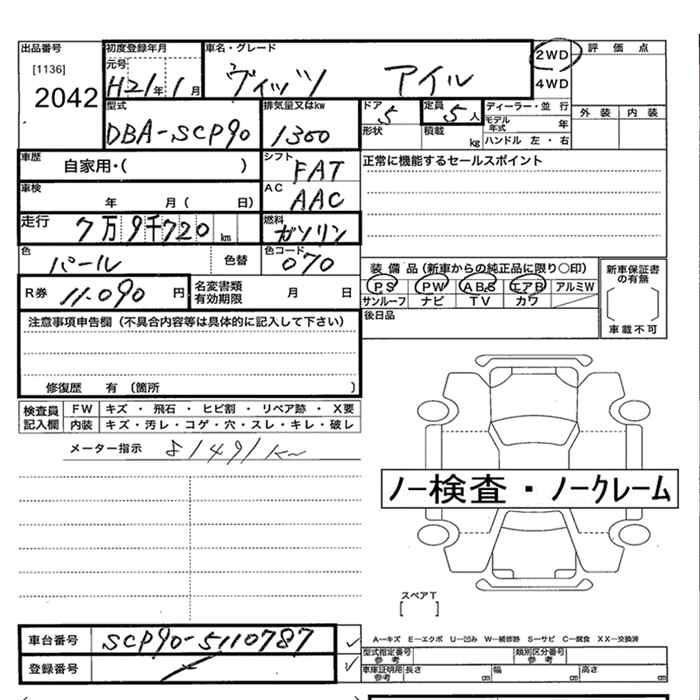 出品番号 初度登録年月 車名・グレード 2WD 評価点
[1136] 元号 4WD
2042 H21年 1月 ヴィッツ アイル
型式 排気量又はkw ドア 5 定員 5人 ディーラー・並行 外装 内装
DBA-SCP90 1300 形状 積載 kg モデル年式 年
ハンドル 左・右
車歴 自家用・( ) シフト FAT 正常に機能するセールスポイント
車検 年 月( 日) AC AAC
走行 7万9千720km 燃料 ガソリン
色 パール 色替 色コード 070 装備品(新車からの純正品に限り○印) 新車保証書の有無
R券 11.090円 名変書類有効期限 月 日 PS PW ABS エアB アルミW
サンルーフ ナビ TV カワ
車載不可
注意事項申告欄(不具合内容等は具体的に記入して下さい) 後日品
修復歴 有(箇所 )
検査員記入欄 FW キズ・飛石・ヒビ割・リペア跡・X要
内装 キズ・汚レ・コゲ・穴・スレ・キレ・破レ
メーター指示 81491km
ノー検査・ノークレーム
スペアT
[ ]
車台番号 SCP90-5110787 A―キズ E―エクボ U―凹み W―補修跡 S―サビ C―腐食 XX―交換済
登録番号 型式指定番号参考 類別区分番号参考
車庫証明用参考 長さ cm 幅 cm 高さ cm